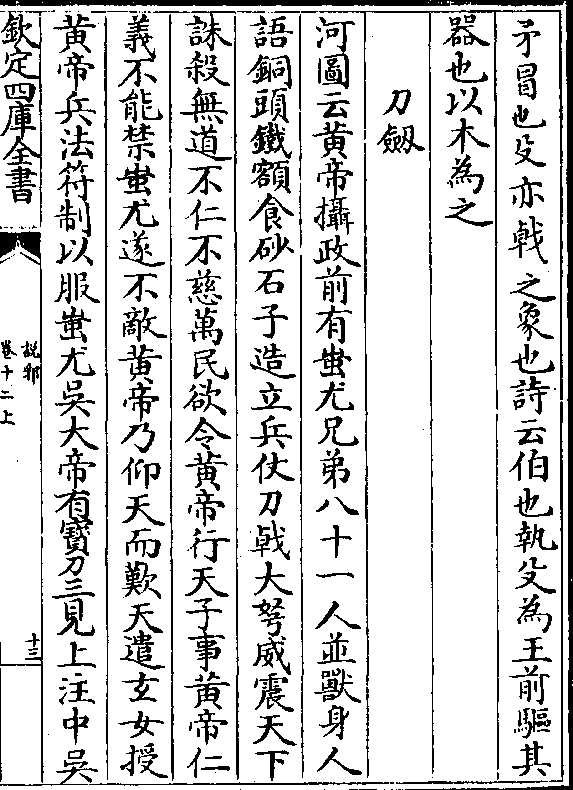 矛冒也殳亦戟之象也詩云伯也執殳為王前驅其
器也以木為之
刀劔
河圖云黄帝攝政前有蚩尤兄弟八十一人並獸身人
語銅頭鐵額食砂石子造立兵仗刀戟大弩威震天下
誅殺無道不仁不慈萬民欲令黄帝行天子事黄帝仁
義不能禁蚩尤遂不敵黄帝乃仰天而歎天遣玄女授
黄帝兵法符制以服蚩尤吳大帝有寶刀三見上注中吳
欽定四庫全書
說郛
卷十二上
十三